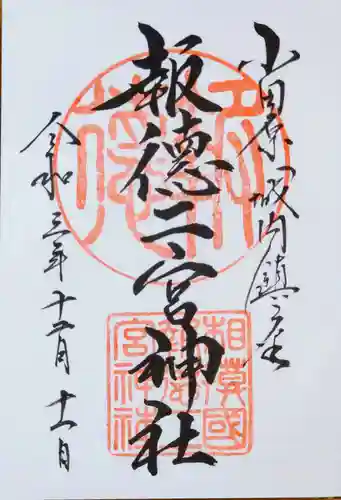 小田原城内鎮座
報徳二宮神社
令和三年十二月十一日
相模國
報徳二
宮神社